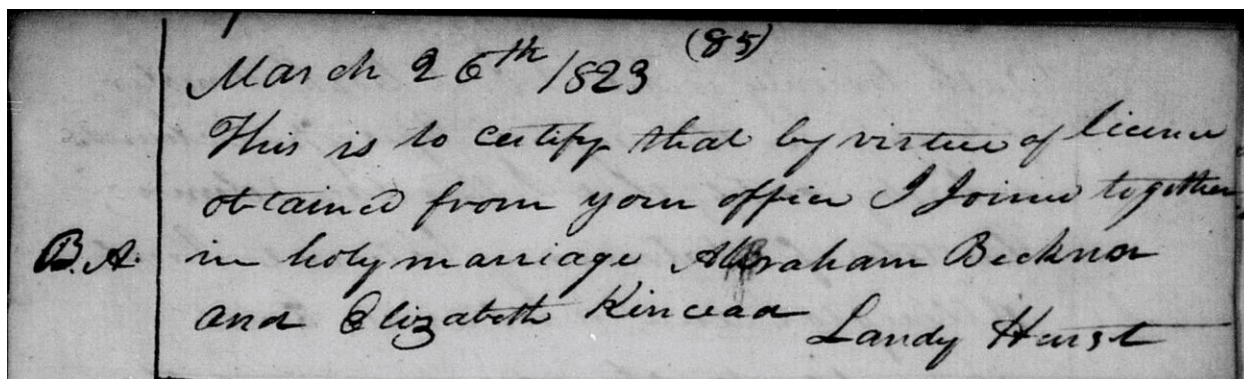 (85)
March 26th 1823
This is to certify that by virtue of licence
obtained from your office I Joined together
B.A. in holy marriage Abraham Becknor
and Elizabeth Kincead
Landy Hurst